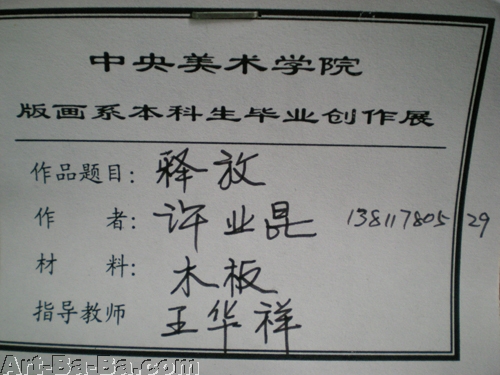 中央美术学院
版画系本科生毕业创作展
作品题目：释放
作 者：许业昆 13811780529
材 料：木板
指导教师 王华祥
Art-Ba-Ba.com